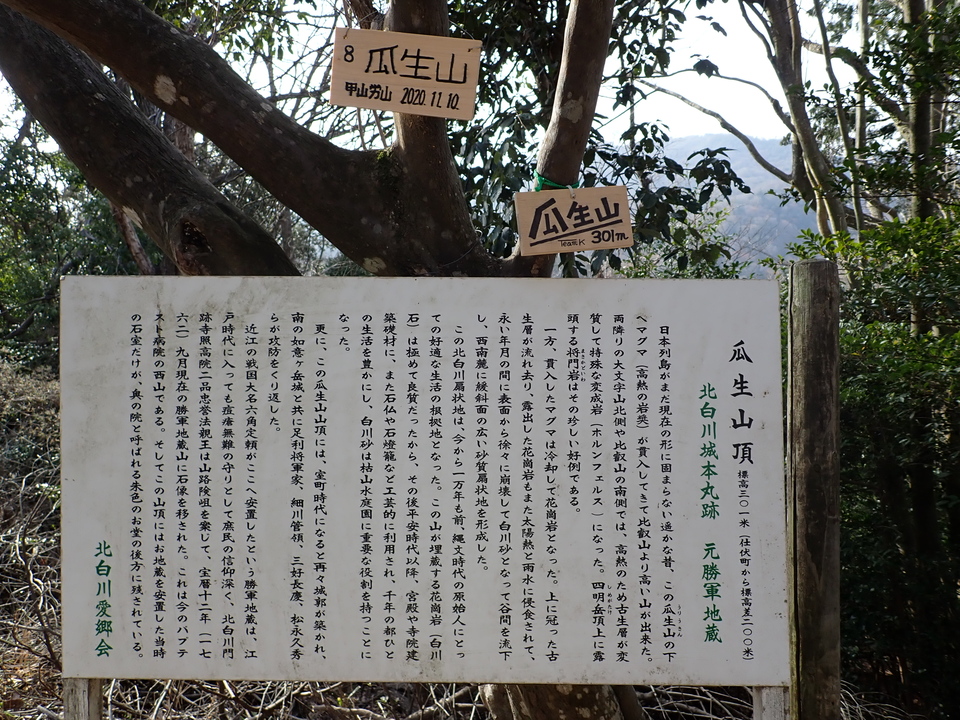 8 瓜生山
甲山労山 2020.11.10.
瓜生山
TeamK 301m
瓜生山頂 標高三〇一米(仕伏町から標高差二〇〇米)
北白川城本丸跡 元勝軍地蔵
日本列島がまだ現在の形に固まらない遥かな昔、この瓜生山の下
うりうさん
へマグマ(高熱の岩奬)が貫入してきて比叡山より高い山が出来た。
両隣りの大文字山北側や比叡山の南側では、高熱のため古生層が変
質して特殊な変成岩(ホルンフェルス)になった。四明岳頂上に露
しめがたけ
頭する将門岩はその珍しい好例である。
まさかどいわ
一方、貫入したマグマは冷却して花崗岩となった。上に冠った古
生層が流れ去り、露出した花崗岩もまた太陽熱と雨水に侵食されて、
永い年月の間に表面から徐々に崩壊して白川砂となって谷間を流下
し、西南麓に緩斜面の広い砂質扇状地を形成した。
この北白川扇状地は、今から一万年も前、縄文時代の原始人にとっ
ての好適な生活の根拠地となった。この山が埋蔵する花崗岩(白川
石)は極めて良質だったから、その後平安時代以降、宮殿や寺院建
築礎材に、また石仏や石燈籠など工芸的に利用され、千年の都ひと
の生活を豊かにし、白川砂は枯山水庭園に重要な役割を持つことに
なった。
更に、この瓜生山山頂には、室町時代になると再々城郭が築かれ、
南の如意ヶ岳城と共に足利将軍家、細川管領、三好長慶、松永久秀
らが攻防をくり返した。
近江の戦国大名六角定頼がここへ安置したという勝軍地蔵は、江
戸時代に入っても痘瘡無難の守りとして庶民の信仰深く、北白川門
跡寺照高院二品忠誉法親王は山路険岨を案じて、宝暦十二年(一七
六二)九月現在の勝軍地蔵山に石像を移された。これは今のバプテ
スト病院の西山である。そしてこの山頂にはお地蔵を安置した当時
の石室だけが、奥の院と呼ばれる朱色のお堂の後方に残されている。
北白川愛郷会